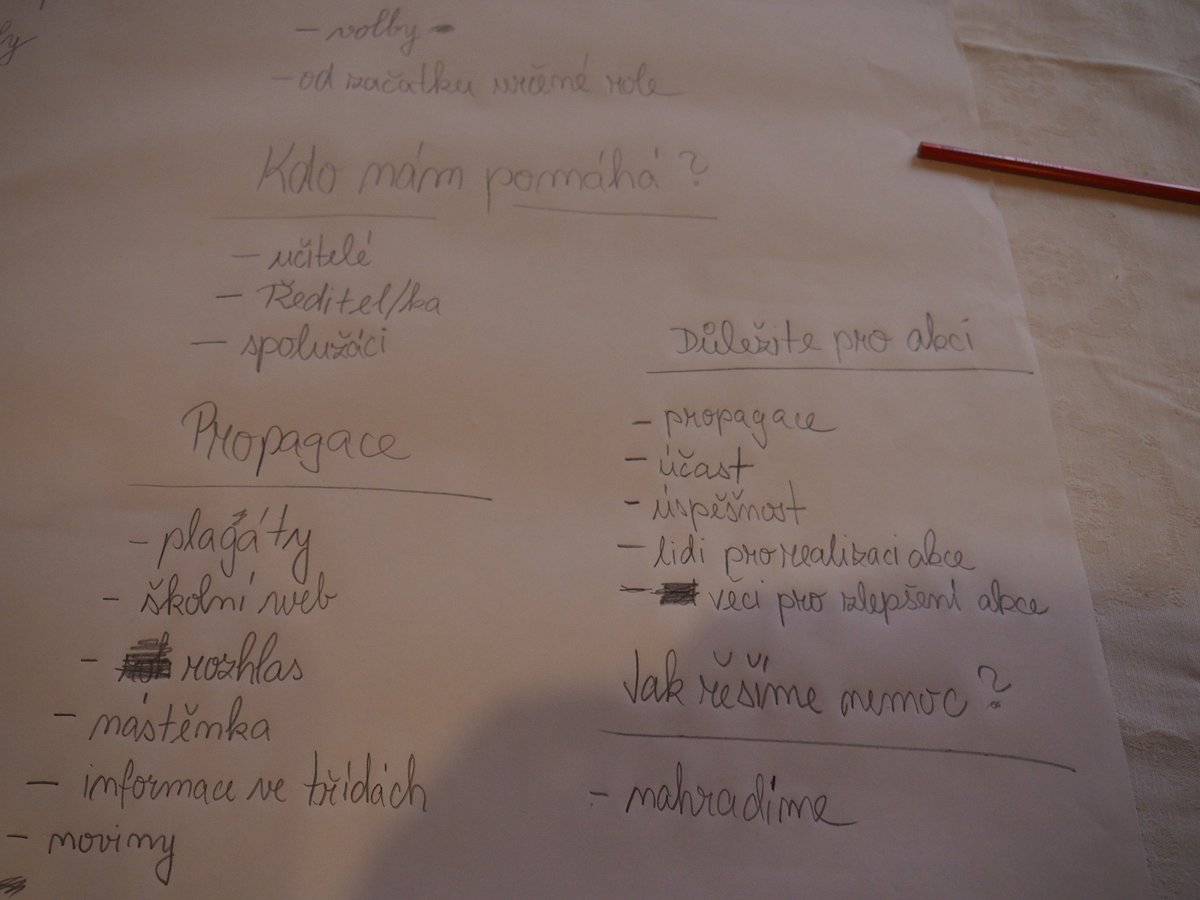 - volby
- od začátku určené role
Kdo nám pomáhá?
- učitelé
- Ředitel/ka
- spolužáci
Propagace
- plagáty
- školní web
- rozhlas
- nástěnka
- informace ve třídách
- noviny
Důležité pro akci
- propagace
- účast
- úspěšnost
- lidi pro realizaci akce
- věci pro zlepšení akce
Jak řešíme nemoc?
- nahradíme